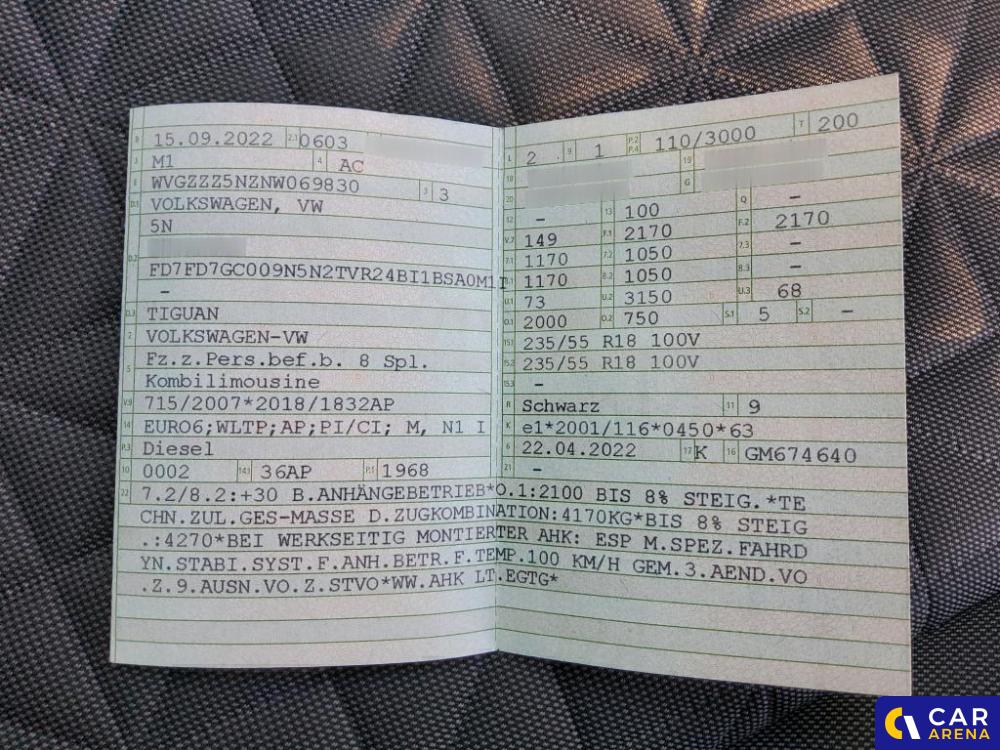 B 15.09.2022 2.1 0603
J M1 4 AC
E WVGZZZ5NZNW069830 3 3
D.1 VOLKSWAGEN, VW
5N
D.2
FD7FD7GC009N5N2TVR24BI1BSA0M1I
-
D.3 TIGUAN
2 VOLKSWAGEN-VW
5 Fz.z.Pers.bef.b. 8 Spl.
Kombilimousine
V.9 715/2007*2018/1832AP
14 EURO6;WLTP;AP;PI/CI; M, N1 I
P.3 Diesel
10 0002 14.1 36AP P.1 1968
L 2 9 1 P.2 P.4 110/3000 T 200
18 19
20 G
12 - 13 100 Q -
V.7 149 F.1 2170 F.2 2170
7.1 1170 7.2 1050 7.3 -
8.1 1170 8.2 1050 8.3 -
U.1 73 U.2 3150 U.3 68
O.1 2000 O.2 750 S.1 5 S.2 -
15.1 235/55 R18 100V
15.2 235/55 R18 100V
15.3 -
R Schwarz 11 9
K e1*2001/116*0450*63
6 22.04.2022 17 K 16 GM674640
21 -
22 7.2/8.2:+30 B.ANHÄNGEBETRIEB*O.1:2100 BIS 8% STEIG.*TE
CHN.ZUL.GES-MASSE D.ZUGKOMBINATION:4170KG*BIS 8% STEIG
.:4270*BEI WERKSEITIG MONTIERTER AHK: ESP M.SPEZ.FAHRD
YN.STABI.SYST.F.ANH.BETR.F.TEMP.100 KM/H GEM.3.AEND.VO
.Z.9.AUSN.VO.Z.STVO*WW.AHK LT.EGTG*
CAR
ARENA